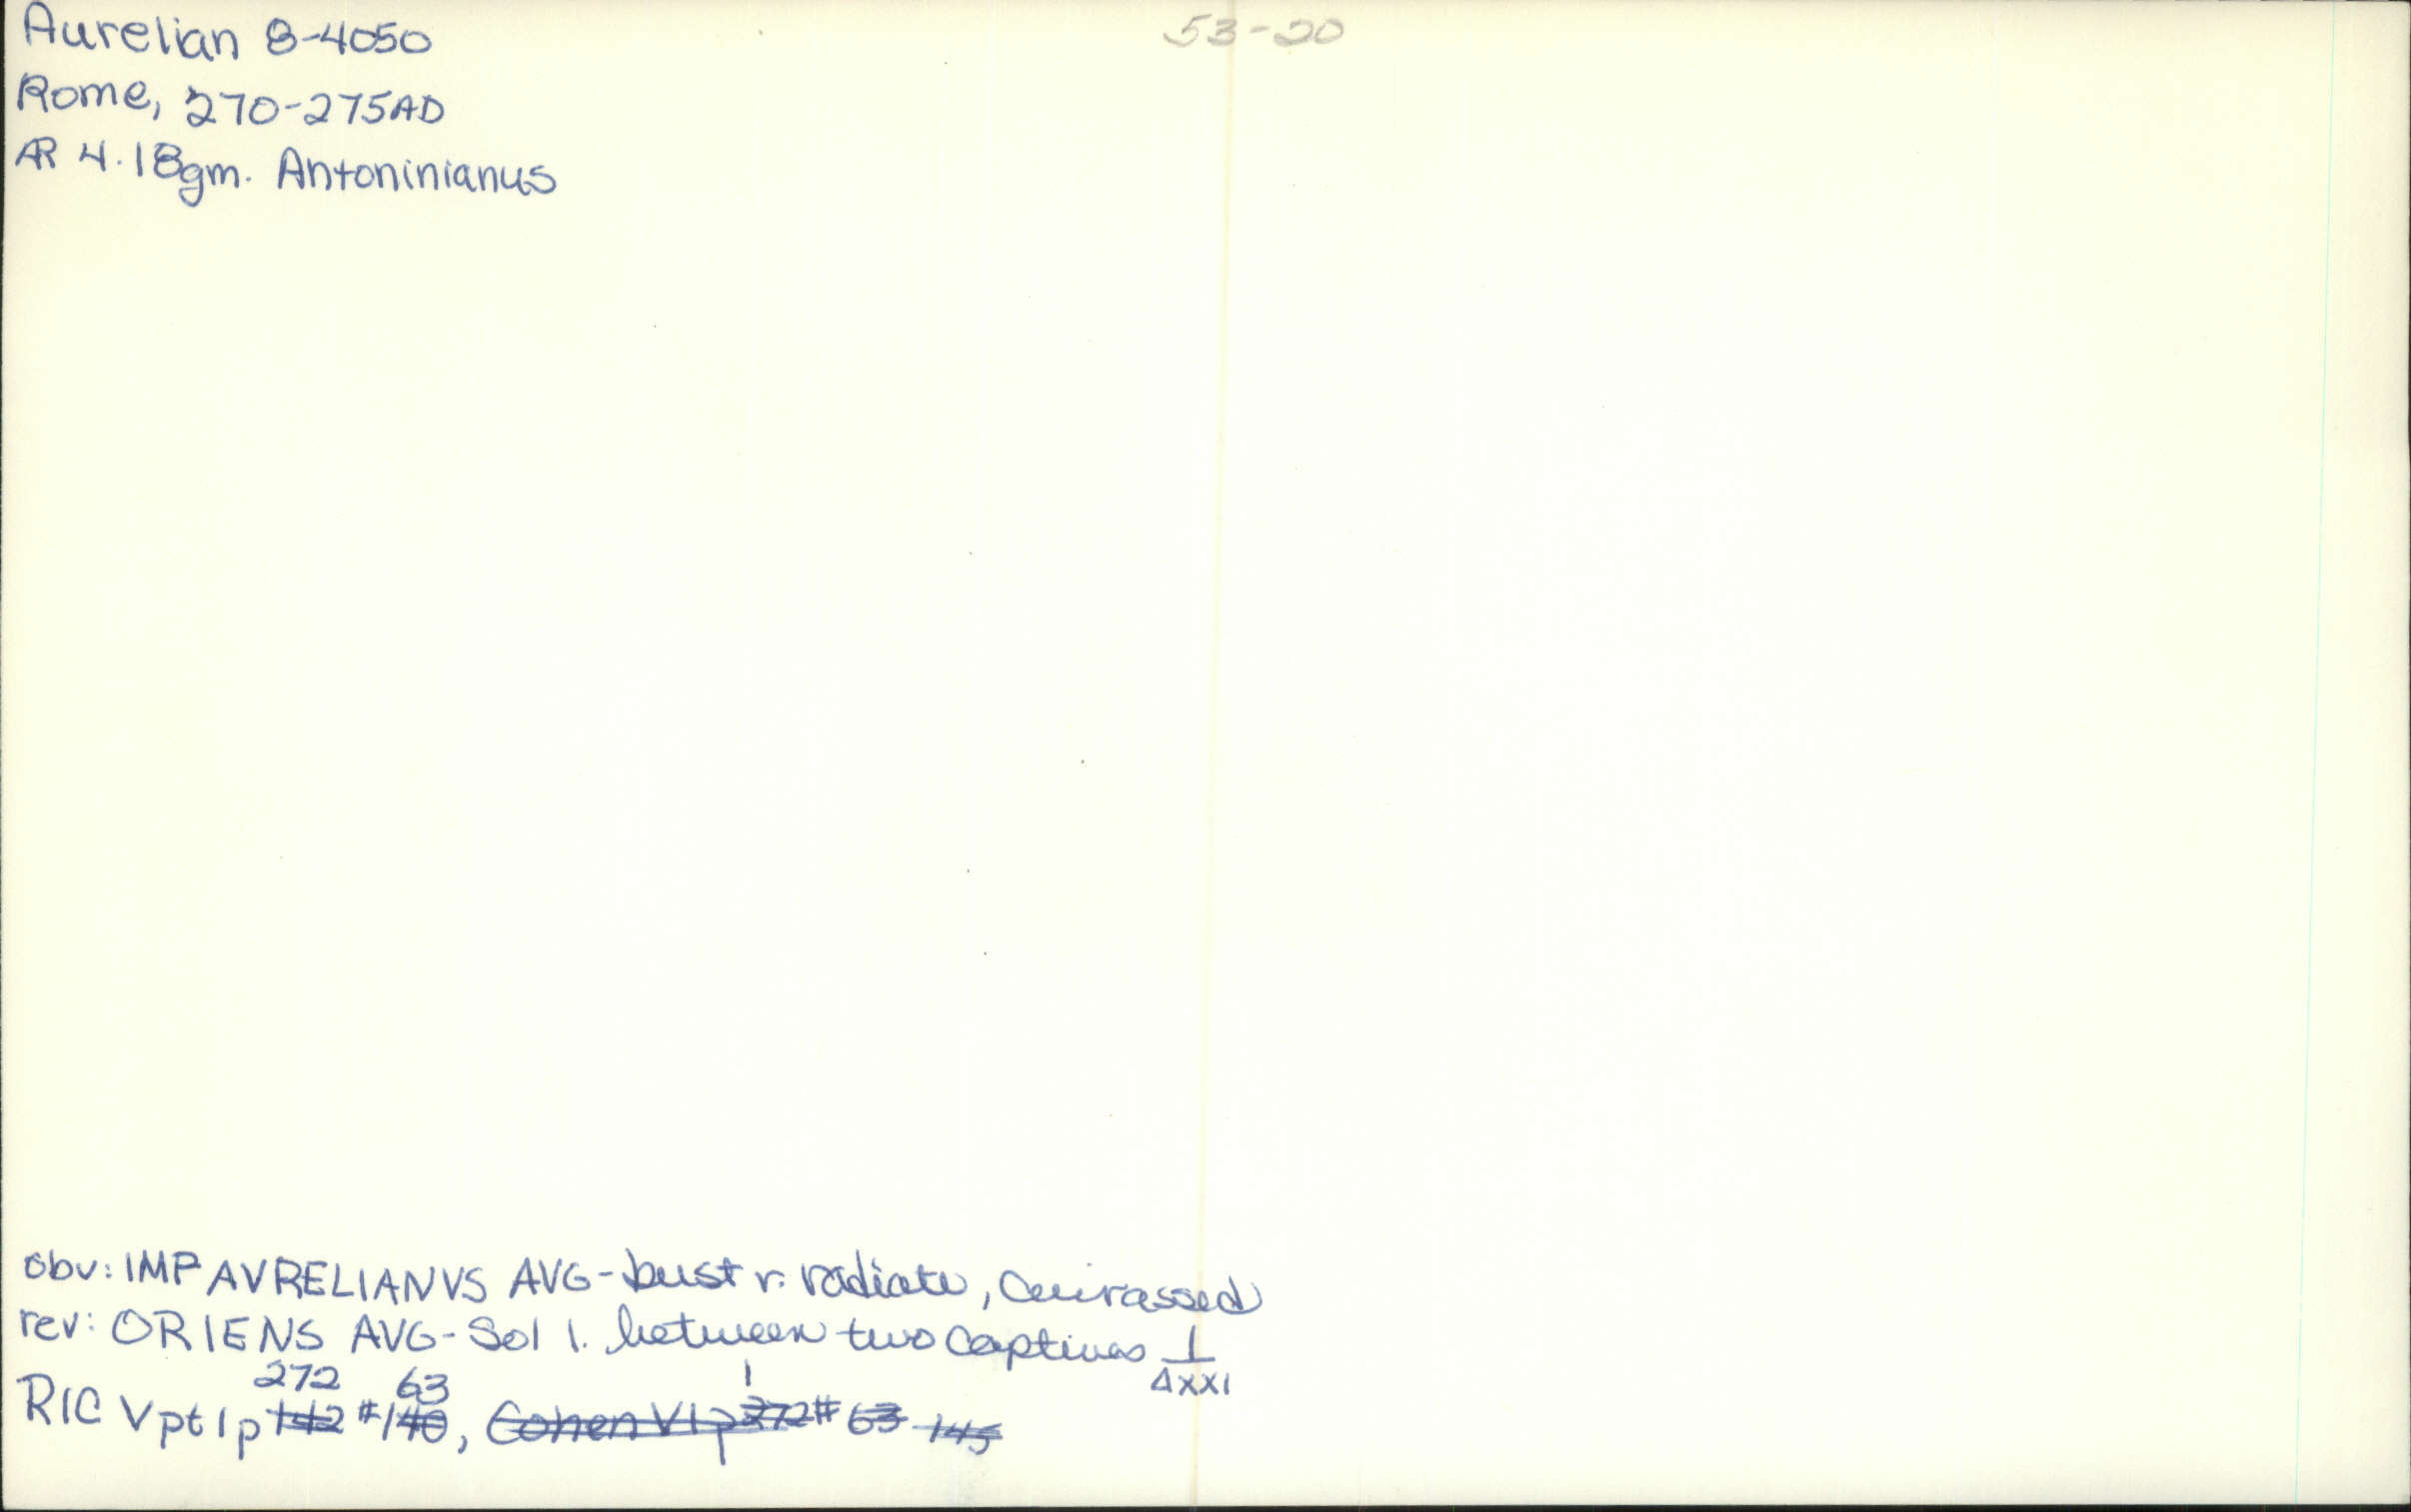 Aurelian 8-4050
53-20
Rome, 270-275AD
AR 4.18gm. Antoninianus
obv: IMP AVRELIANVS AVG-bust r. radiate, cuirassed
rev: ORIENS AVG-Sol l. between two captives 1
ΔXXI
272 63 1
RIC V pt 1 p 142 #140, Cohen VI p 272 # 63 145